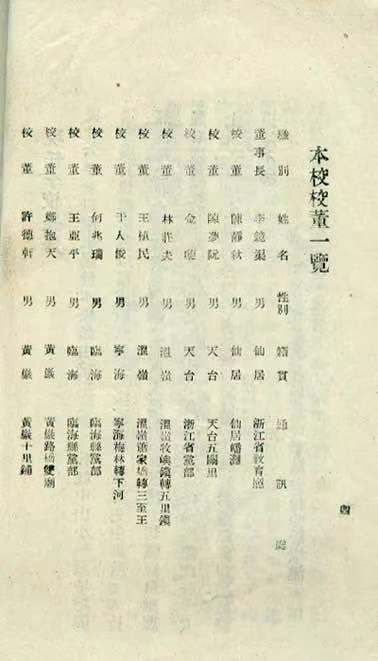 本校校董一覽
職別 姓名 性別 籍貫 通訊處
董事長 李鏡渠 男 仙居 浙江省教育廳
校董 陳靜秋 男 仙居 仙居皤灘
校董 陳夢阮 男 天台 天台五陽里
校董 金 男 天台 浙江省黨部
校董 林莊夫 男 溫嶺 溫嶺牧嶼鎮轉五里鎮
校董 王植民 男 溫嶺 溫嶺蕭家橋轉三至王
校董 干人俊 男 寧海 寧海梅林轉下河
校董 何兆瑞 男 臨海 臨海縣黨部
校董 王崑平 男 臨海 臨海縣黨部
校董 鄭抱天 男 黃巖 黃巖路橋雙廟
校董 許德軒 男 黃巖 黃巖十里鋪